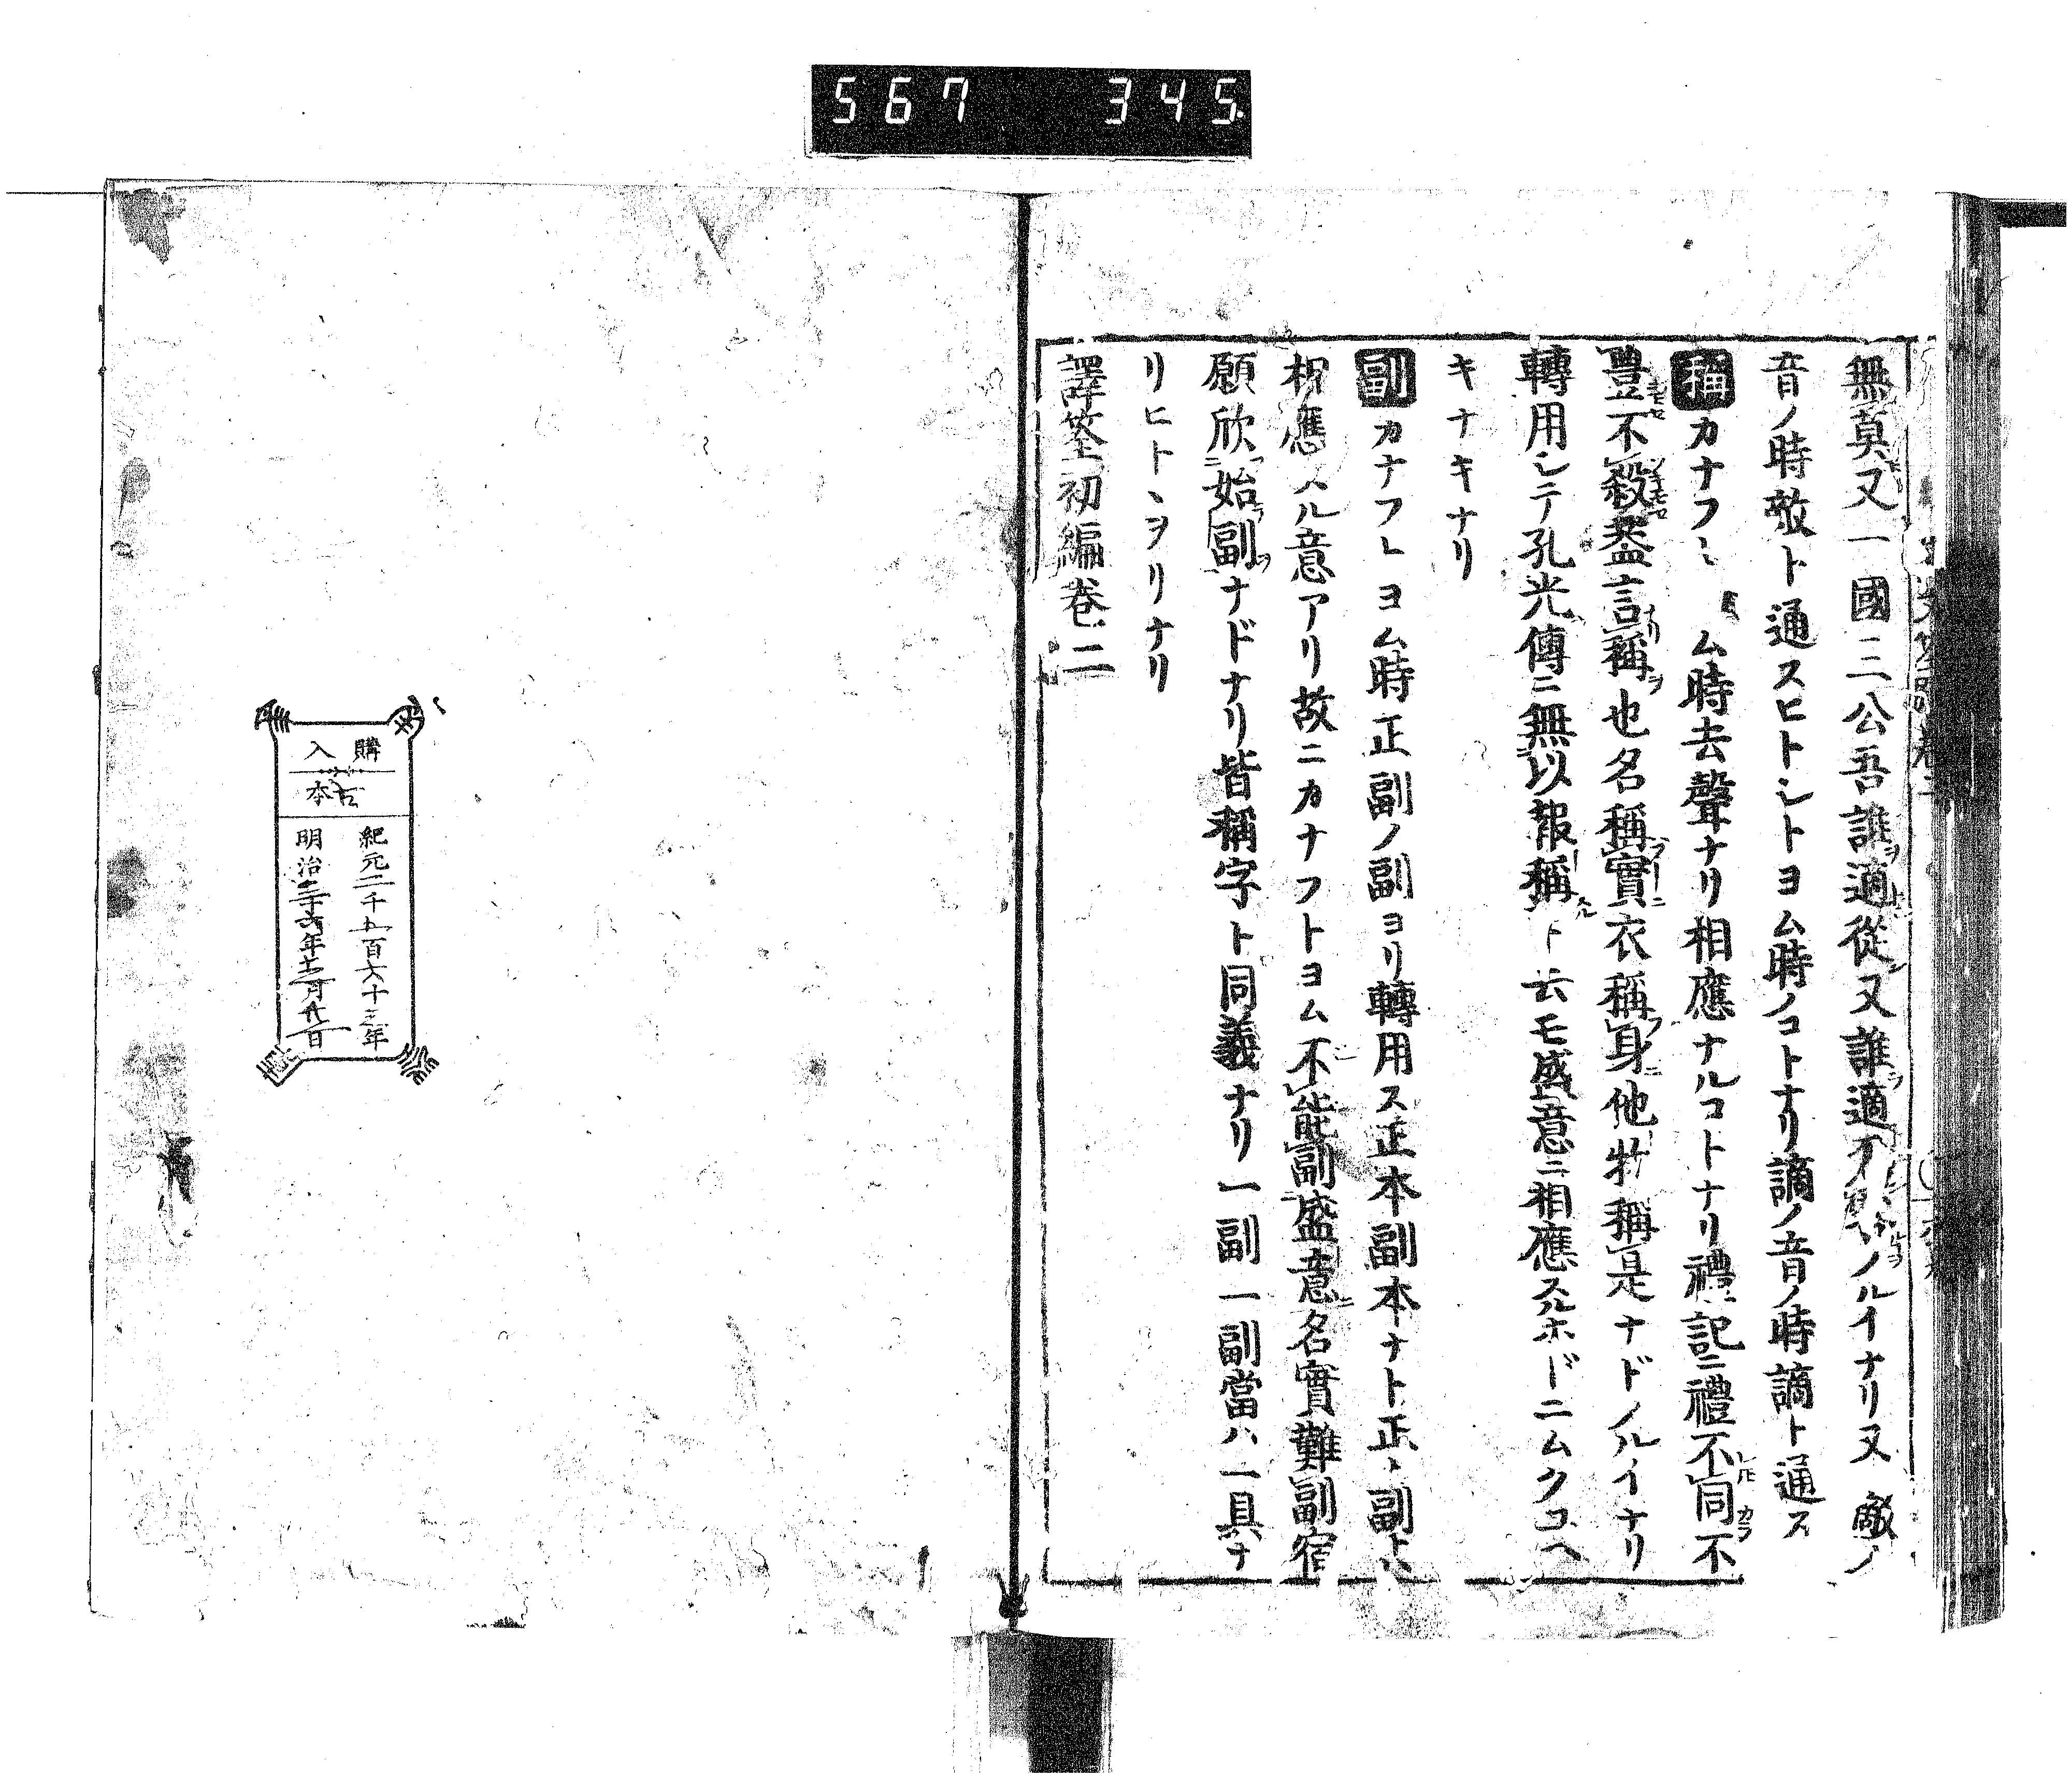 567 345
無莫又一國三公吾誰適從又誰適ノルイナリ又敵ノ
音ノ時敵ト通スヒトシトヨム時ノコトナリ謫ノ音ノ時謫ト通ス
稱カナフム時去聲ナリ相應ナルコトナリ禮記ニ禮不同不
豊不殺蓋言稱也名稱實衣稱身他物稱是ナドノルイナリ
轉用シテ孔光傳ニ無以報稱ト云モ盛意ニ相應スルホドニムクコヘ
キナキナリ
副カナフトヨム時正副ノ副ヨリ轉用ス正本副本ナト正ト副トハ
相應スル意アリ故ニカナフトヨム不能副盛意名實難副宿
願欣始副ナドナリ皆稱字ト同義ナリ一副一副當ハ一具ナ
リヒトヽヲリナリ
譯筌初編卷二
購入
古本
紀元二千五百六十三年
明治三十六年十二月九日